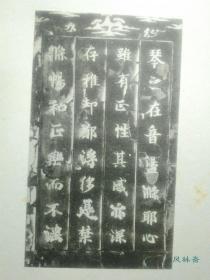 琴之在音盪滌耶心
雖有正性其感亦深
存雅却鄭浮侈是禁
條暢和正樂而不淫